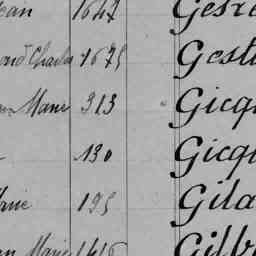 ean 1647 Gesre
ond Charles 1675 Gest
Marie 313 Gicq
130 Gicq
Marie 195 Gila
Marie 1416 Gilb